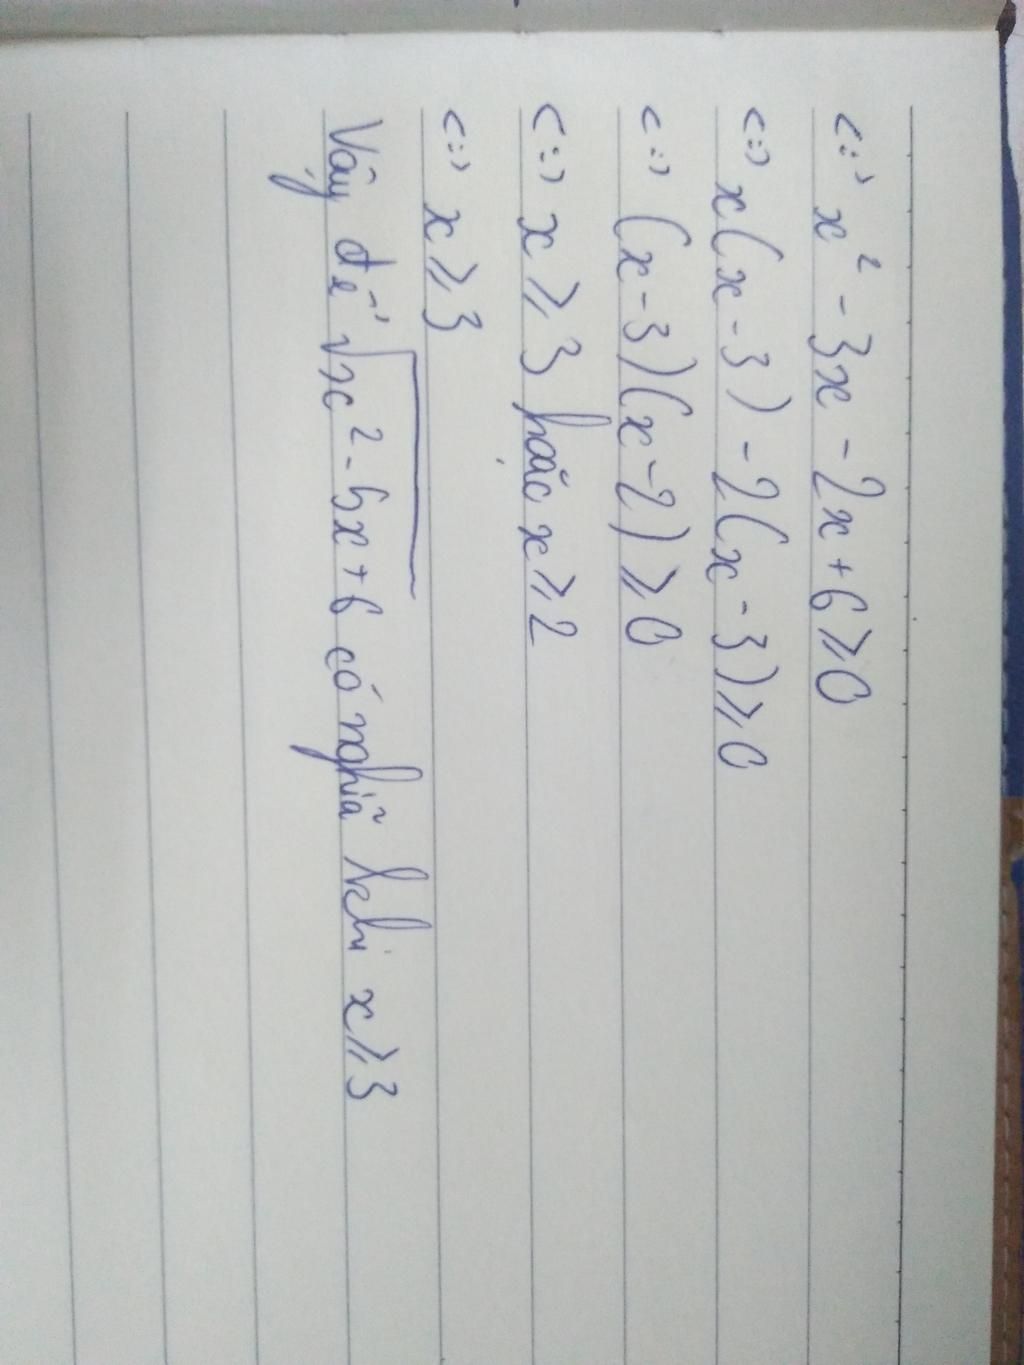 <=> x² - 3x - 2x + 6 ⩾ 0
<=> x(x - 3) - 2(x - 3) ⩾ 0
<=> (x - 3)(x - 2) ⩾ 0
<=> x ⩾ 3 hoặc x ⩾ 2
<=> x ⩾ 3
Vậy để √(x² - 5x + 6) có nghĩa khi x ⩾ 3